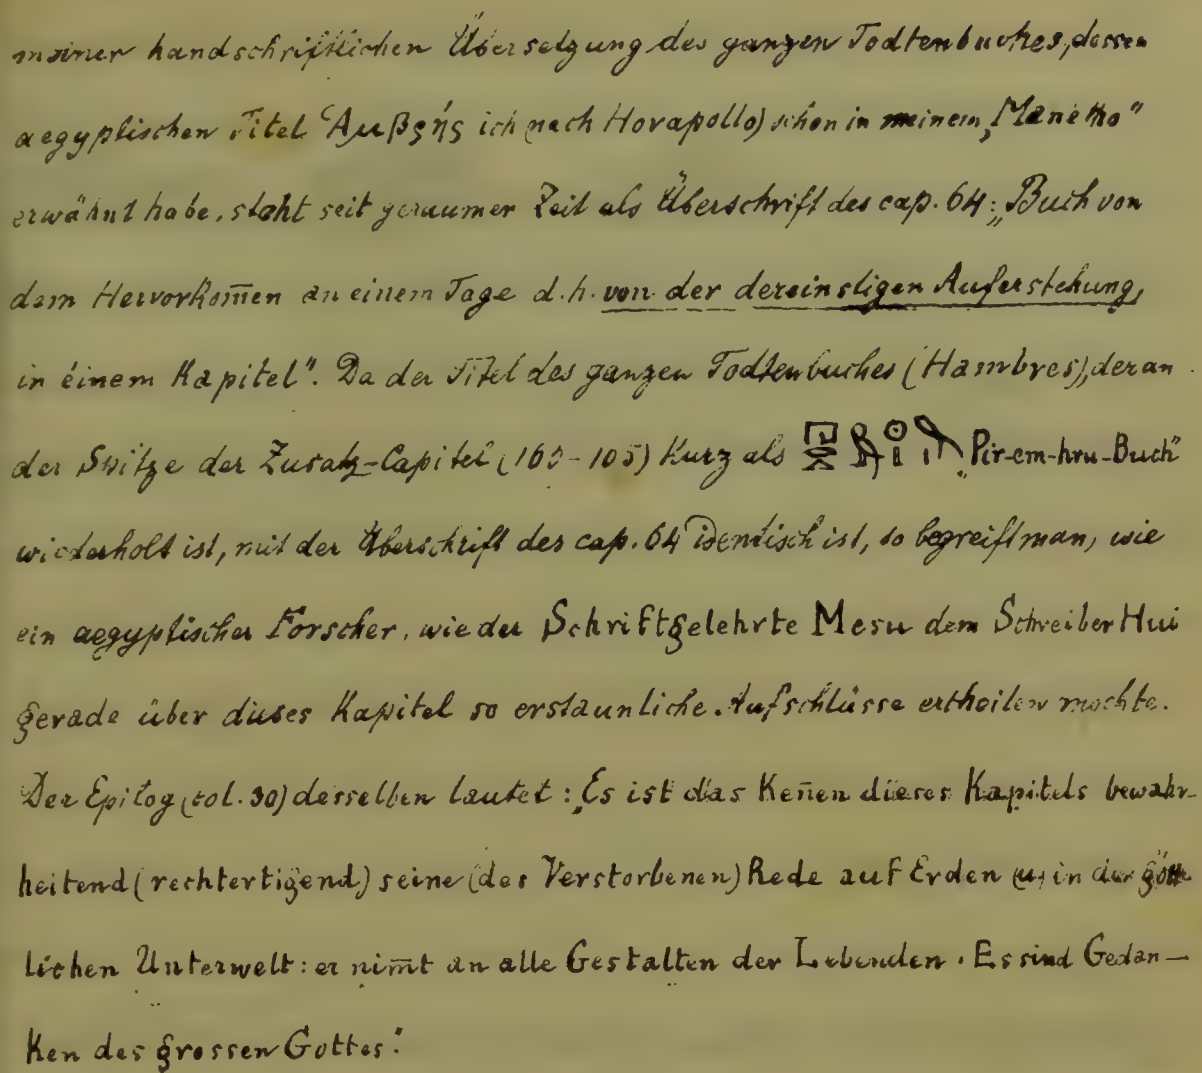 meiner handschriftlichen Übersetzung des ganzen Todtenbuches, dessen
aegyptischen Titel Ἀμβρής ich (nach Horapollo) schon in meinem „Manetho"
erwähnt habe, steht seit geraumer Zeit als Überschrift des cap. 64: „Buch von
dem Hervorkom̄en an einem Tage d. h. von der dereinstigen Auferstehung,
in éinem Kapitel". Da der Titel des ganzen Todtenbuches (Hambres), der an
der Spitze der Zusatz-Capitel (163-165) Kurz als „Pir-em-hru-Buch"
wiederholt ist, mit der Überschrift des cap. 64 identisch ist, so begreift man, wie
ein aegyptischer Forscher, wie der Schriftgelehrte Mesu dem Schreiber Hui
gerade über dieses Kapitel so erstaunliche Aufschlüsse ertheilen mochte.
Der Epilog (col. 30) desselben lautet: „Es ist das Ken̄en dieses Kapitels bewahr-
heitend (rechtfertigend) seine (des Verstorbenen) Rede auf Erden (u) in der gött-
lichen Unterwelt: er nim̄t an alle Gestalten der Lebenden. Es sind Gedan-
Ken des grossen Gottes."